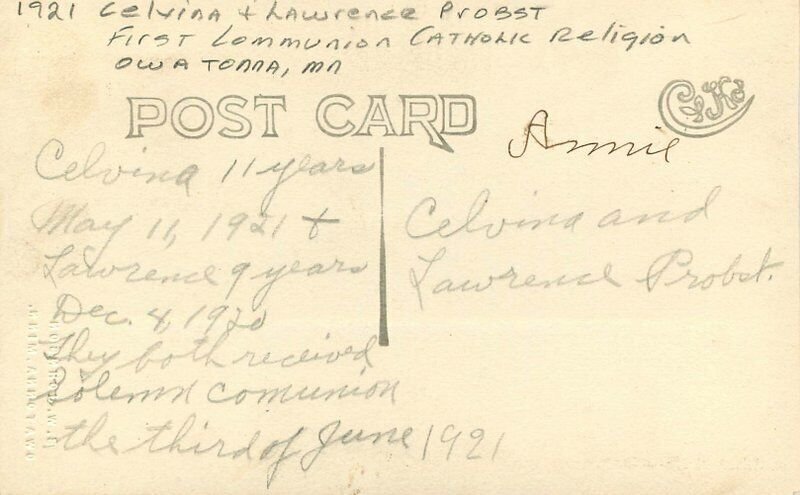 1921 Celvina + Lawrence Probst
First Communion Catholic Religion
Owatonna, Mn
POST CARD
Annie
Celvina 11 years
May 11, 1921 +
Lawrence 9 years
Dec. 4, 1920
They both received
Solemn comunion
the third of June 1921
Celvina and
Lawrence Probst.